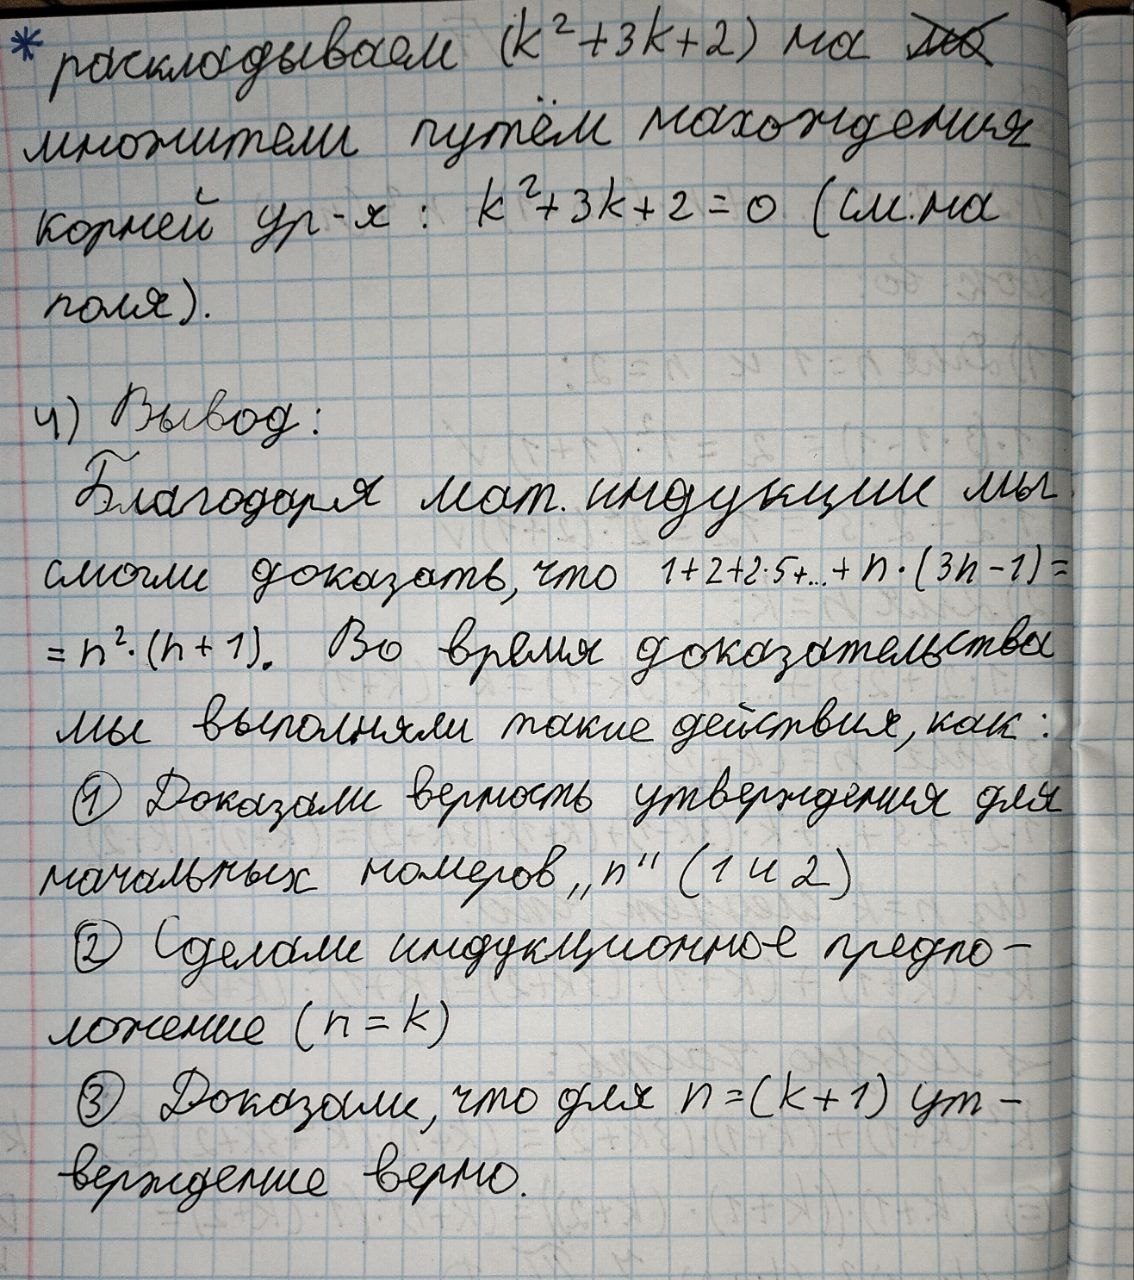 * раскладываем (k²+3k+2) на
множители путём нахождения
корней ур-я: k²+3k+2=0 (см. на
поля).
4) Вывод:
Благодаря мат. индукции мы
смогли доказать, что 1+2+2·5+...+n·(3n-1)=
=n²·(n+1). Во время доказательства
мы выполняли такие действия, как:
① Доказали верность утверждения для
начальных номеров „n" (1 и 2)
② Сделали индукционное предпо-
ложение (n=k)
③ Доказали, что для n=(k+1) ут-
верждение верно.